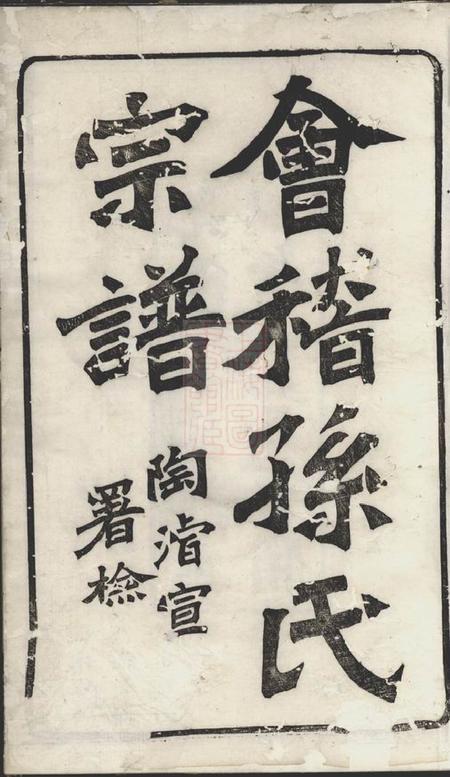 會稽孫氏
宗譜
陶濬宣
署檢